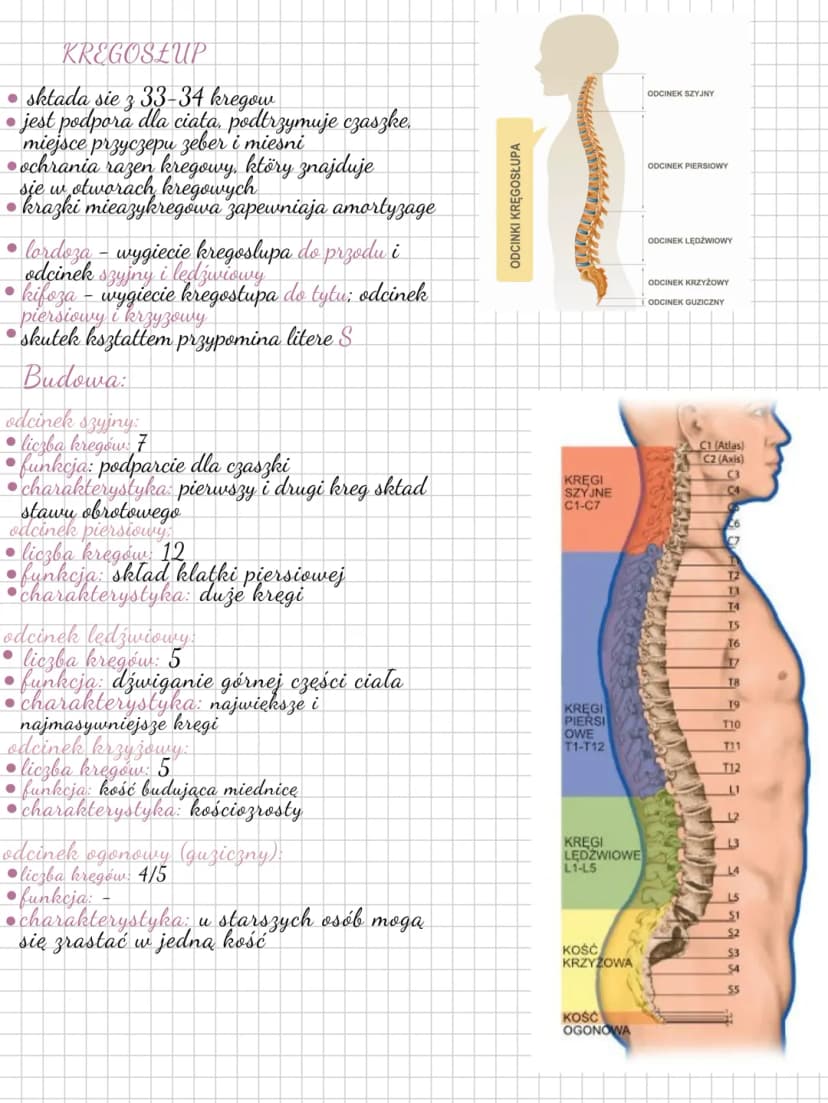 KRĘGOSŁUP
• składa sie z 33-34 kregow
• jest podpora dla ciała, podtrzymuje czaszke,
miejsce przyczepu zeber i miesni
• ochrania razen kregowy, który znajduje
sie w otworach kregowych
• krazki mieazykregowa zapewniaja amortyzage
• lordoza - wygiecie kregoslupa do przodu i
odcinek szyjny i lędźwiowy
• kifoza - wygiecie kregosłupa do tyłu; odcinek
piersiowy i krzyzowy
• skutek kształtem przypomina litere S
Budowa:
odcinek szyjny:
• liczba kręgów: 7
• funkcja: podparcie dla czaszki
• charakterystyka: pierwszy i drugi kreg skład
stawu obrotowego
odcinek piersiowy:
• liczba kręgów: 12
• funkcja: skład klatki piersiowej
• charakterystyka: duże kręgi
odcinek lędźwiowy:
• liczba kręgów: 5
• funkcja: dźwiganie górnej części ciała
• charakterystyka: największe i
najmasywniejsze kręgi
odcinek krzyżowy:
• liczba kręgów: 5
• funkcja: kość budująca miednicę
• charakterystyka: kościozrosty
odcinek ogonowy (guziczny):
• liczba kręgów: 4/5
• funkcja: -
• charakterystyka: u starszych osób mogą
się zrastać w jedną kość
ODCINKI KRĘGOSŁUPA
ODCINEK SZYJNY
ODCINEK PIERSIOWY
ODCINEK LĘDŹWIOWY
ODCINEK KRZYŻOWY
ODCINEK GUZICZNY
KRĘGI
SZYJNE
C1-C7
KRĘGI
PIERSI
OWE
T1-T12
KRĘGI
LĘDŹWIOWE
L1-L5
KOŚĆ
KRZYŻOWA
KOŚĆ
OGONOWA
C1 (Atlas)
C2 (Axis)
C3
C4
C5
C6
C7
T1
T2
T3
T4
T5
T6
T7
T8
T9
T10
T11
T12
L1
L2
L3
L4
L5
S1
S2
S3
S4
S5